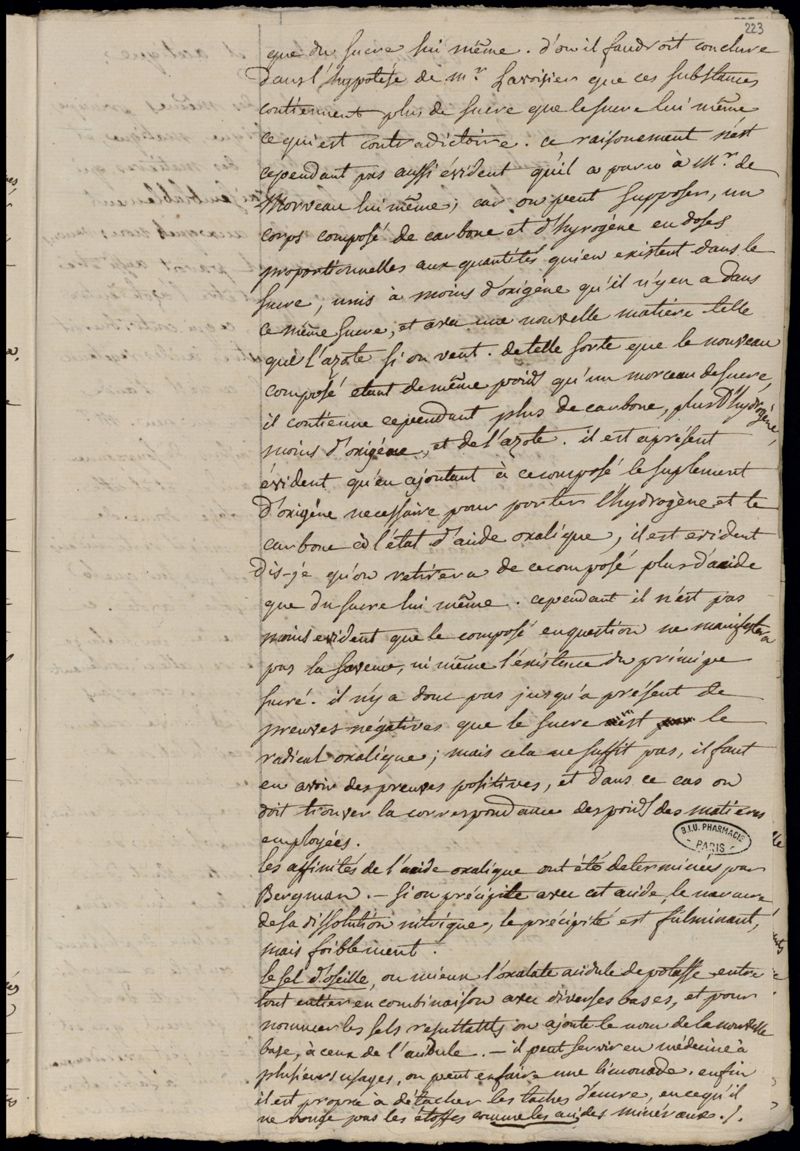 223
que du sucre lui même. d'ou il faudroit conclure
dans l'hypotése de mr. Lavoisier que ces substances
contiennent plus de sucre que le sucre lui même
ce qui est contradictoire. ce raisonement n'est
cependant pas aussi évident qu'il a paru à Mr. de
Morveau lui même; car on peut supposer, un
corps composé de carbone et d'hyrogène en doses
proportionnelles aux quantités qui en existent dans le
sucre, unis à moins d'oxigène qu'il n'y en a dans
ce même sucre, et avec une nouvelle matiére telle
que l'azote si on veut. de telle sorte que le nouveau
composé etant de même poids qu'un morceau de sucre,
il contienne cependant plus de carbone, plus d'hydrogène,
moins d'oxigène, et de l'azote. il est aprésent
évident qu'en ajoutant à ce composé le suplement
d'oxigène necessaire pour porter l'hydrogène et le
carbone à l'état d'acide oxalique, il est evident
dis-je qu'on retirera de ce composé plus d'acide
que du sucre lui même. cependant il n'est pas
moins evident que le composé en question ne manifestera
pas la saveur, ni même l'éxistence du principe
sucré. il n'y a donc pas jusqu'a présent de
preuves négatives que le sucre est le
radical oxalique; mais cela ne suffit pas, il faut
en avoir des preuves positives, et dans ce cas on
doit trouver la correspondance des poids des matieres
employées.
B.I.U. PHARMACIE
PARIS
les affinités de l'acide oxalique ont été determinées par
Bergman. — Si on précipite avec cet acide, le mercure
de sa dissolution nitrique, le précipité est fulminant,
mais foiblement.
le sel d'oseille, ou mieux l'oxalate acidule de potasse entre
tout entier en combinaison avec diverses bases, et pour
nommer les sels resultatifs on ajoute le nom de la nouvelle
base, à ceux de l'acidule. — il peut servir en médecine à
plusieurs usages, on peut en faire une limonade. enfin
il est propre à détacher les taches d'encre, en ce qu'il
ne ronge pas les étoffes comme les acides minéraux./.